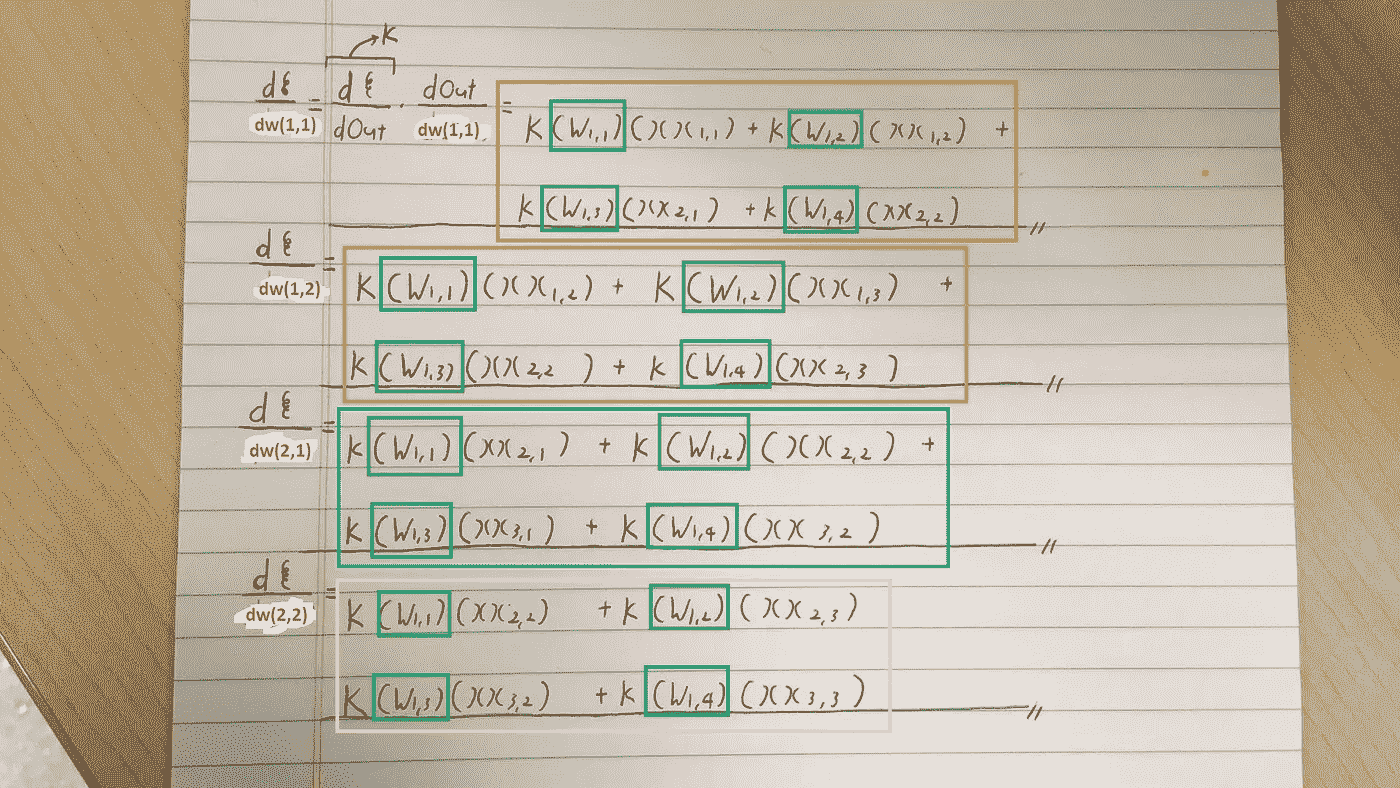 K
dξ/dw(1,1) = dξ/dOut · dOut/dw(1,1) = K(W1,1)(XX1,1) + K(W1,2)(XX1,2) +
K(W1,3)(XX2,1) + K(W1,4)(XX2,2) //
dξ/dw(1,2) = K(W1,1)(XX1,2) + K(W1,2)(XX1,3) +
K(W1,3)(XX2,2) + K(W1,4)(XX2,3) //
dξ/dw(2,1) = K(W1,1)(XX2,1) + K(W1,2)(XX2,2) +
K(W1,3)(XX3,1) + K(W1,4)(XX3,2) //
dξ/dw(2,2) = K(W1,1)(XX2,2) + K(W1,2)(XX2,3)
K(W1,3)(XX3,2) + K(W1,4)(XX3,3) //